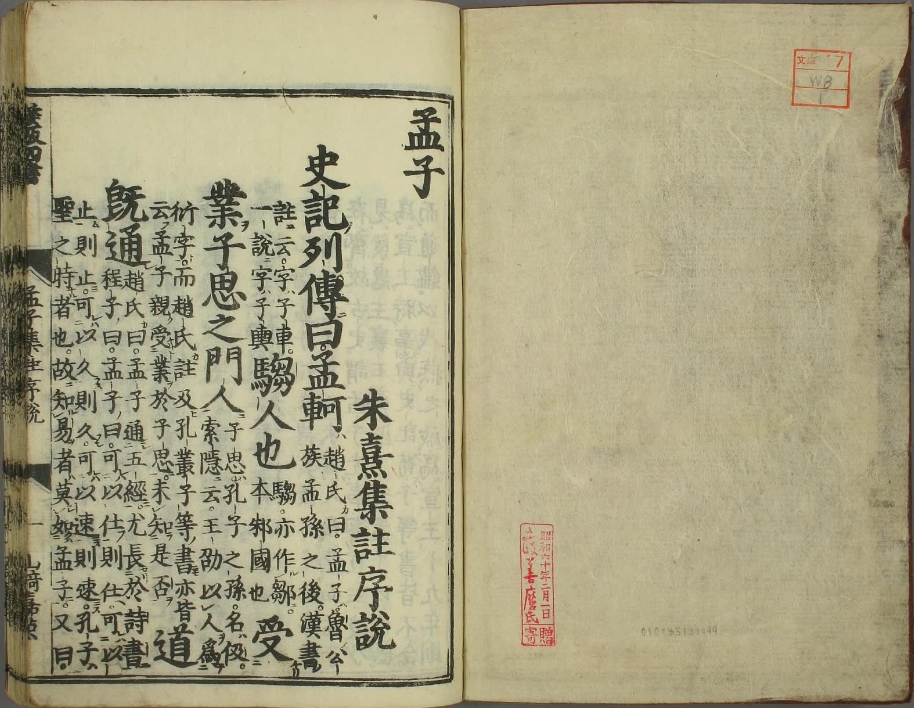 文 17
W8
1
昭和六十年二月一日
麿氏寄
贈
孟子
朱熹集註序說
史記列傳曰孟軻趙氏曰孟子魯公
族孟孫之後漢書
註云字子車
一說字子輿騶人也騶亦作鄒
本邾國也受
業子思之門人子思孔子之孫名伋
索隱云王劭以人為
衍字而趙氏註及孔叢子等書亦皆
云孟子親受業於子思未知是否道
既通趙氏曰孟子通五經尤長於詩書
程子曰孟子曰可以仕則仕可以
止則止可以久則久可以速則速孔子
聖之時者也故知易者莫如孟子又曰
孟子集註序說 一